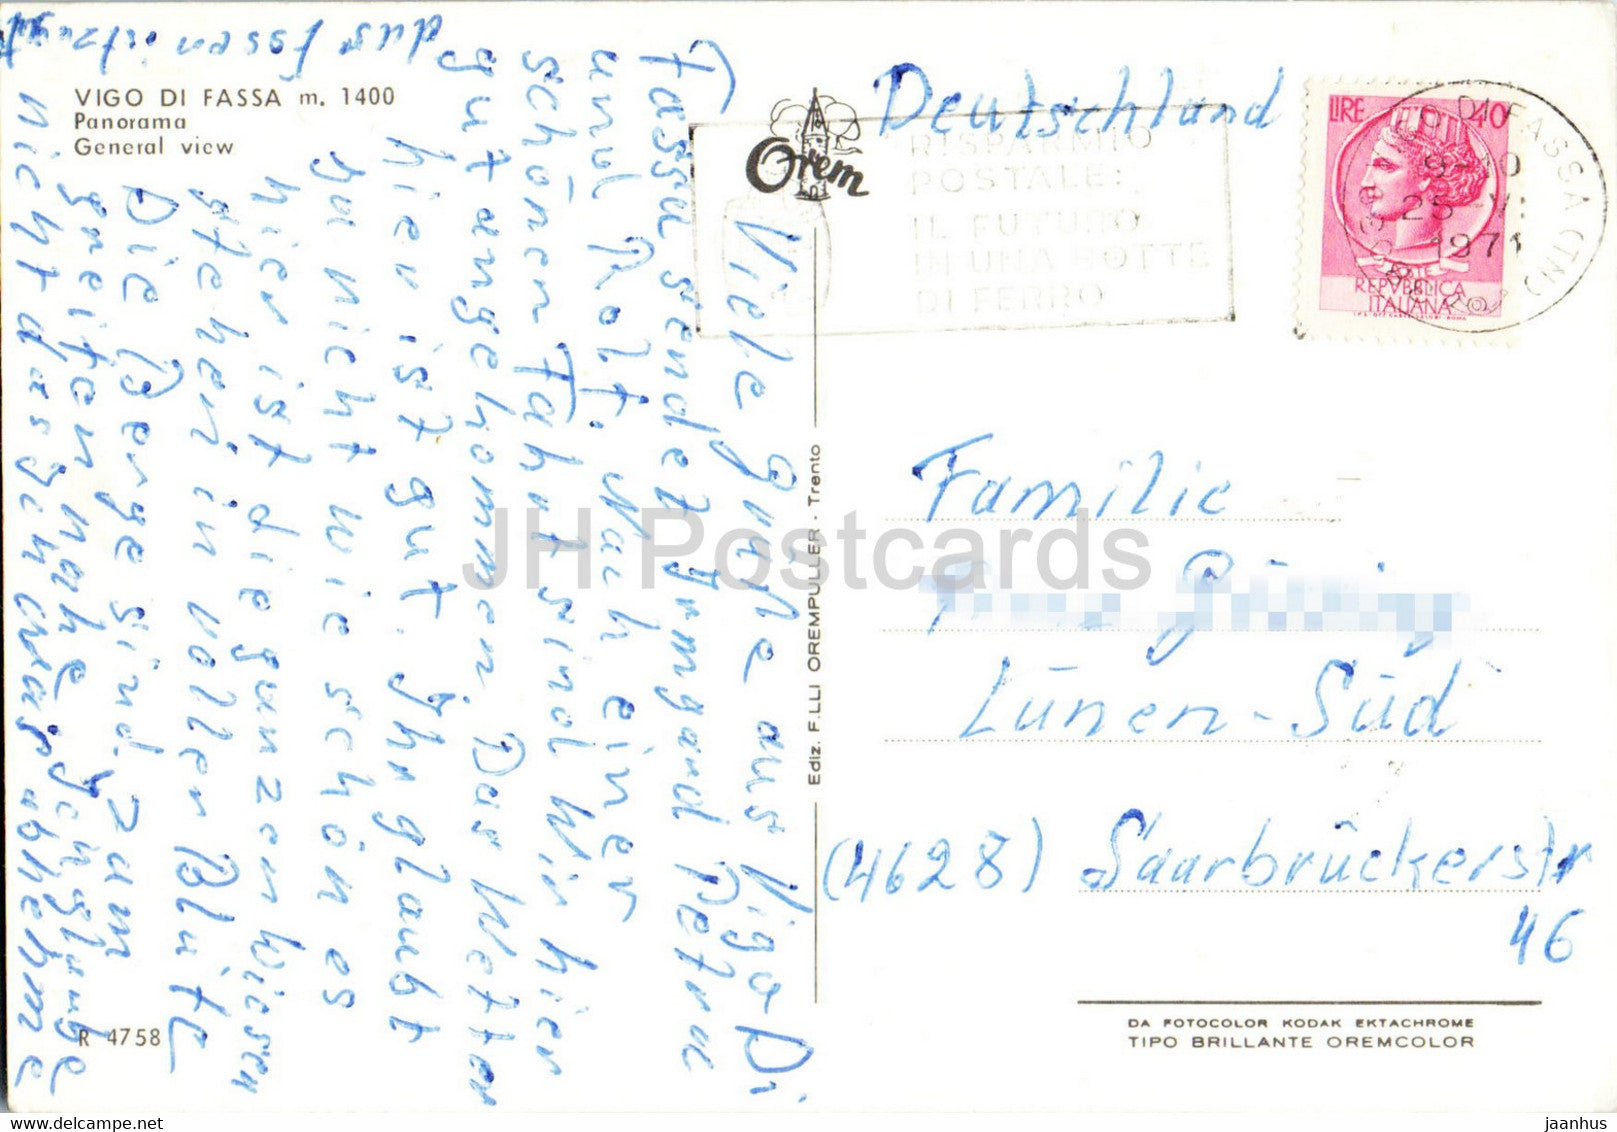 VIGO DI FASSA m. 1400
Panorama
General view
Orem
Viele Grüße aus Vigo Di
Fassa sendet Irmgard Petra
und Rolf. Nach einer
schönen Fahrt sind Wir hier
gut angekommen. Das Wetter
hier ist gut. Ihr glaubt
gu nicht wie schön es
hier ist die ganzen Wiesen
stehen in voller Blüte
Die Berge sind zum
greifen nahe. Ich glaube
nicht das ich was abnehme
das Essen ist zu
R 4758
Ediz. F.LLI OREMPULLER - Trento
Deutschland
RISPARMIO
POSTALE:
IL FUTURO
IN UNA BOTTE
DI FERRO
LIRE 40
REPVBBLICA
ITALIANA
DI FASSA (TN)
9-10
25
1971
Familie
Lünen-Süd
(4628) Saarbrückerstr
46
DA FOTOCOLOR KODAK EKTACHROME
TIPO BRILLANTE OREMCOLOR
JH Postcards
www.delcampe.net
jaanhus